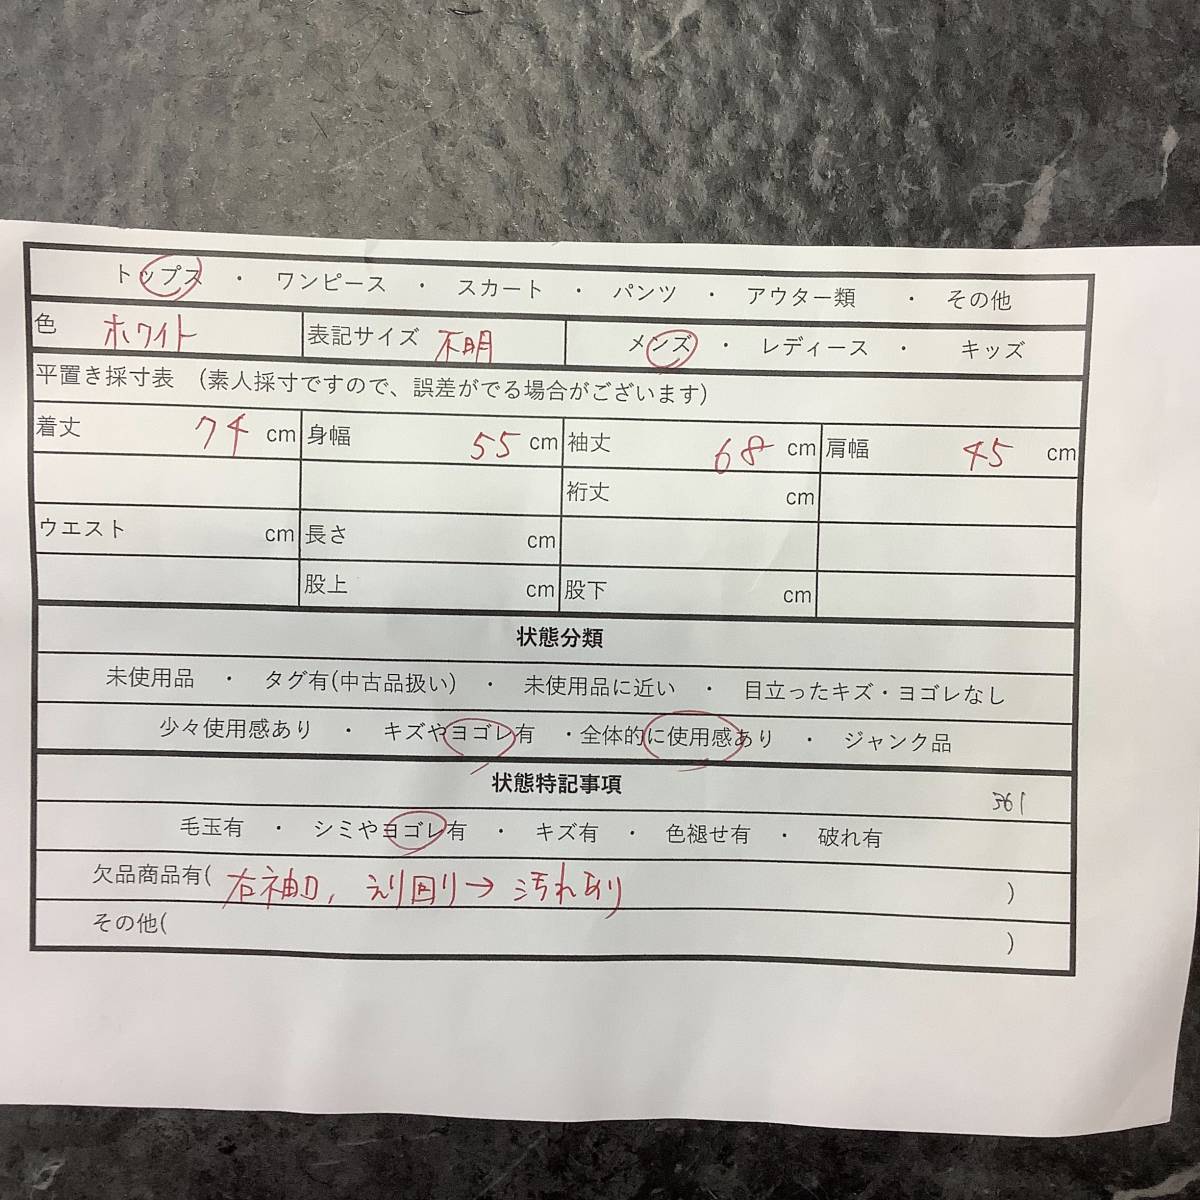 トップス ・ ワンピース ・ スカート ・ パンツ ・ アウター類 ・ その他
色 ホワイト 表記サイズ 不明 メンズ ・ レディース ・ キッズ
平置き採寸表 (素人採寸ですので、誤差がでる場合がございます)
着丈 74 cm 身幅 55 cm 袖丈 68 cm 肩幅 45 cm
裄丈 cm
ウエスト cm 長さ cm
股上 cm 股下 cm
状態分類
未使用品 ・ タグ有(中古品扱い) ・ 未使用品に近い ・ 目立ったキズ・ヨゴレなし
少々使用感あり ・ キズやヨゴレ有 ・全体的に使用感あり ・ ジャンク品
状態特記事項
361
毛玉有 ・ シミやヨゴレ有 ・ キズ有 ・ 色褪せ有 ・ 破れ有
欠品商品有( 右袖口, えり回り→汚れあり )
その他( )